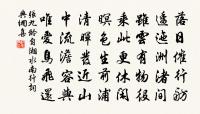 落日催行舫
逶迤洲渚間
雖云有物役
乘此更休閑
暝色生前浦
清暉發近山
中流澹容與
唯愛鳥飛還
張九齡自湘水南行詞
典網書